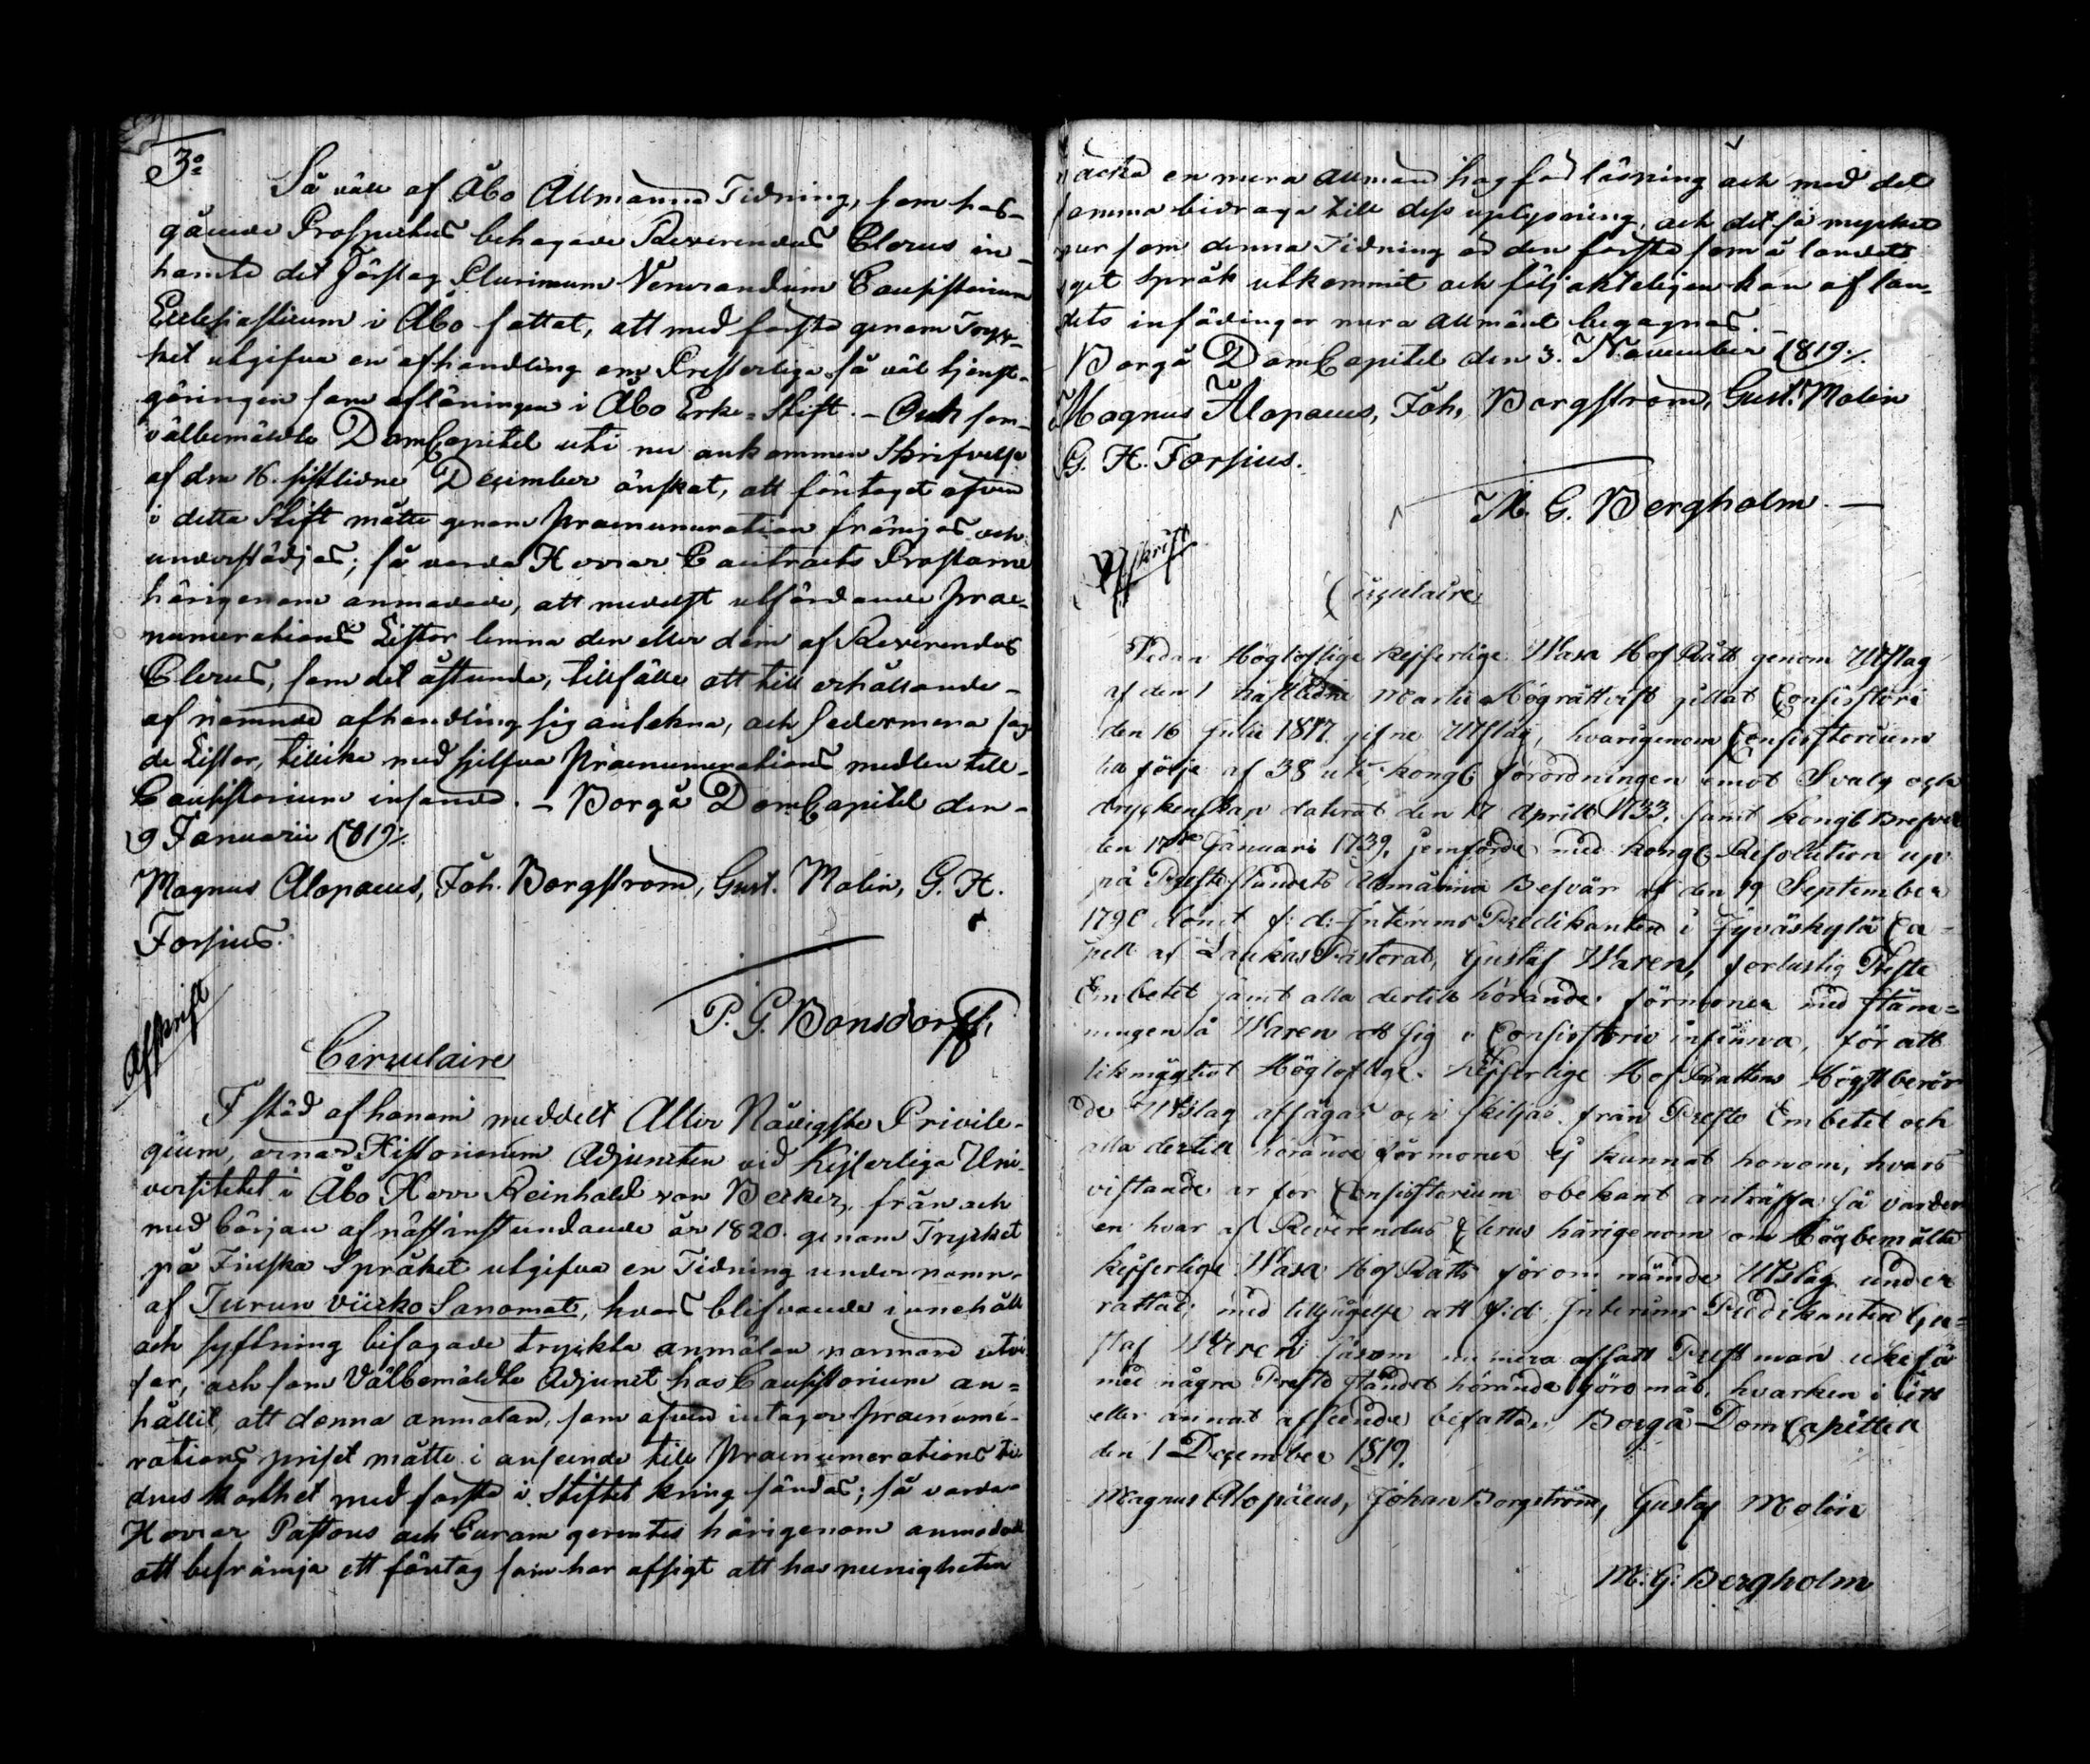 3:o
Så väll af Åbo Allmänna Tidning, som hos-
gående Prospectus behagade Reverendus Clerus in-
hämta det Förslag Plurimum Venerandum Consistorium
Ecclesiasticum i Åbo fattat, att med första genom Tryc-
ket utgifva en afhandling om Presterliga så väl tjenst-
göringen som aflöningen i Åbo Erke-Stift. – Och som
välbemälde DomCapitel uti nu ankommen Skrifvelse
af den 16. sistlidne December önskat, att företaget äfven
i detta Stift måtte genom praenumeration främjas och
understödjas; så varda Herrar Contracts Prostarne
härigenom anmodade, att medelst utfärdande prae-
numerations Listor lemna den eller dem af Reverendus
Clerus, som det åstunda, tillfälle att till erhållande
af nämnde afhandling sig anteckna, och sedermera sag-
de Listor, tillika med sjelfva Praenumerations medlen till
Consistorium insända. – Borgå DomCapitel den
9 Januarii 1819./.
Magnus Alopaeus, Joh. Borgström, Gust. Molin, G. H.
Forsius.
P. G. Bonsdorff.
Afskrift
Circulaire
I stöd af honom meddelt Aller Nådigste Privile-
gium, ärnar Historiarum Adjuncten vid Kejserliga Uni-
versitetet i Åbo Herr Reinhold von Becker, från och
med början af nästinstundande år 1820. genom Trycket
på Finska Språket utgifva en Tidning under namn
af Turun Viicko Sanomat, hvars blifvande innehåll
och syftning bifogade tryckta anmälan närmare utvi-
sar, och som Välbemälde Adjunct hos Consistorium an=
hållit, att denna anmälan, som äfven intager praenume-
rations priset måtte i anseende till praenumerations ti
dens korthet med första i Stiftet kring sändas; så varda
Herrar Pastores och Curam gerentes härigenom anmodade
att befrämja ett företag som har afsigt att hos menigheten
väcka en mera allmän hog för läsning och med det
samma bidraga till dess uplysning, och det så mycket
mer som denna Tidning är den första som å landets
eget språk utkommit och följakteligen kan af lan-
dets infödingar mera allmänt begagnas.
Borgå DomCapitel den 3. November 1819./.
Magnus Alopaeus, Joh. Borgström, Gust. Molin
G. H. Forsius.
M. G. Bergholm. —
Afskrift
Circulaire
Sedan Högloflige Kejserlige Wasa Hof Rätt genom Utslag
af den 1 nästledne Martii Högrättvist gillat Consistorii
den 16 Julii 1817. gifne Utslag, hvarigenom Consistorium
til följe af 3 § uti Kongl. förordningen emot Svalg och
dryckenskap daterat den 17 Aprill 1733. samt Kongl. Brefvet
den 17de Januari 1739, jemförde med Kongl. Resolution up
på PresteStåndets Allmänna Besvär af den 19 September
179 dömt f: d: Interims Predikanten i Jyväskylä Ca-
pell af Laukas Pastorat, Gustaf Waren, förlustig Preste
Embetet jämt alla dertill hörande förmoner med stäm=
ningen å Waren att sig i Consistorio infinna, för att
likmägtigt Högloflige Kejserlige Hof Rättens Högstberör
de Utslag afsägas och skiljas från Preste Embetet och
alla dertill hörande förmoner ej kunnat honom, hvars
vistande är för Consistorium obekant anträffa så varder
en hvar af Reverendus Clerus härigenom om Högbemälte
Kejserlige Wasa Hof Rätts förom nämde Utslag under
rättad; med tillsägelse att f:d: Interims Predikanten Gu=
staf Waren såsom nu mera afsatt Prestman icke få
med några Presto Ståndet hörande göromål, hvarken i ett
eller annat afseende befatta. Borgå Dom Capittel
den 1 December 1819.
Magnus Alopaeus, Johan Borgström, Gustaf Molin
M. G. Bergholm